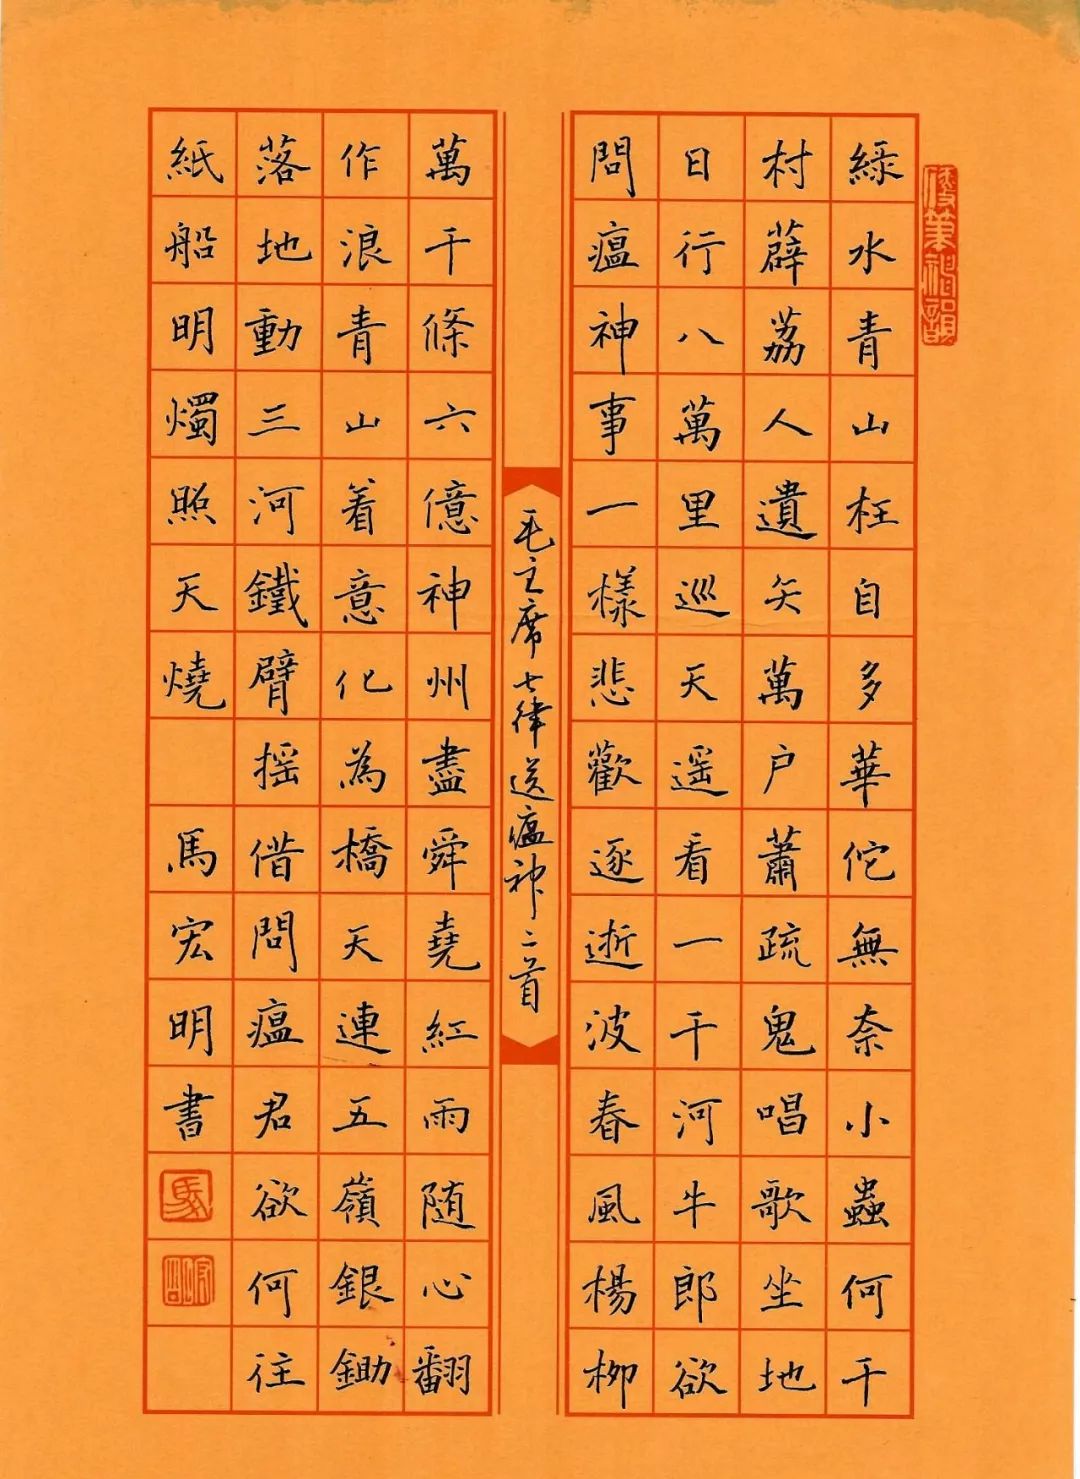 綠水青山枉自多華佗無奈小蟲何千
村薜荔人遺矢萬户蕭疏鬼唱歌坐地
日行八萬里巡天遥看一千河牛郎欲
問瘟神事一樣悲歡逐逝波春風楊柳
毛主席七律送瘟神二首
萬千條六億神州盡舜堯紅雨随心翻
作浪青山着意化為橋天連五嶺銀鋤
落地動三河鐵臂摇借問瘟君欲何往
紙船明燭照天燒 馬宏明書
馬
宏明